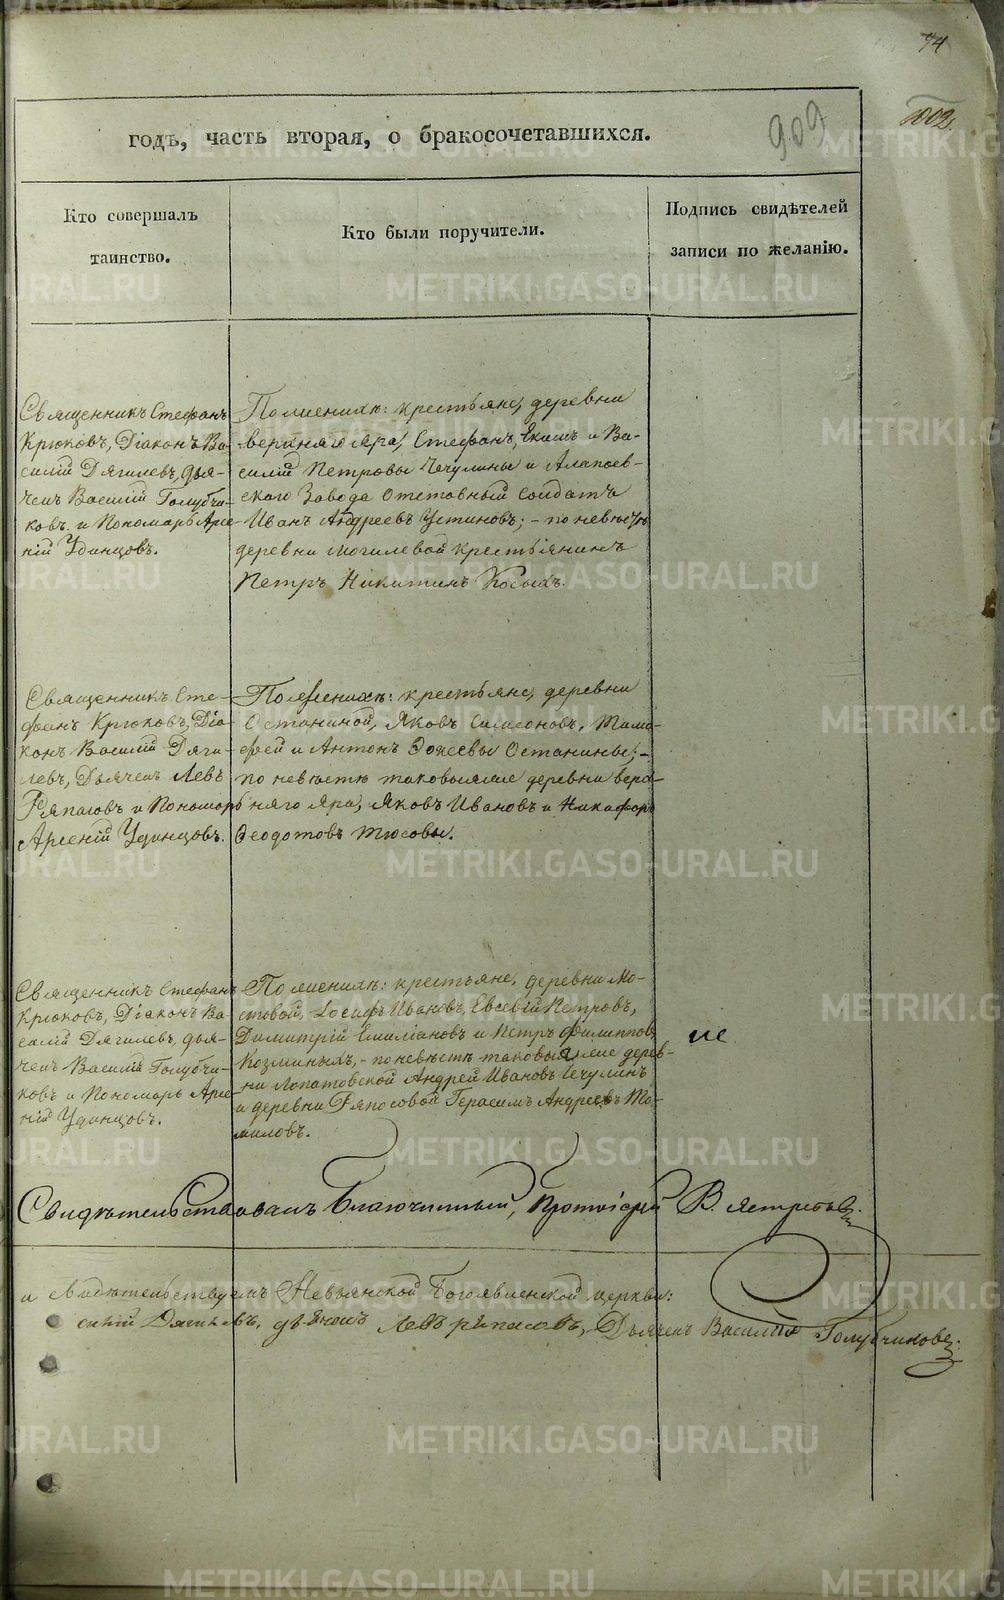 74
1002.
909
годъ, часть вторая, о бракосочетавшихся.
Кто совершалъ
таинство.
Кто были поручители.
Подпись свидѣтелей
записи по желанію.
Священникъ Стефанъ
Крюковъ, Діаконъ Ва-
силій Дягилевъ, дья-
чекъ Василій Голубчи-
ковъ и Пономарь Арсе-
ній Удинцовъ.
По женихѣ: крестьяне, деревни
верхняго яра, Стефанъ, Екимъ и Ва-
силій Петровы Чечулины и Алапаев-
скаго Завода Отставный Солдатъ
Иванъ Андреевъ Устиновъ; - по невѣстѣ
деревни Могилевой крестьянинъ
Петръ Никитинъ Косыхъ.
Священникъ Сте-
фанъ Крюковъ, Діа-
конъ Василій Дяги-
левъ, Дьячекъ Левъ
Ряпасовъ и Пономарь
Арсеній Удинцовъ.
По женихѣ: крестьяне, деревни
Останиной, Яковъ Симеоновъ, Тимо-
фей и Антонъ Останины; -
по невѣстѣ таковыеже деревни верх-
няго яра, Яковъ Ивановъ и Никифоръ
Ѳеодотовъ Тюсовы.
Священникъ Стефанъ
Крюковъ, Діаконъ Ва-
силій Дягилевъ, дья-
чекъ Василій Голубчи-
ковъ и Пономарь Арсе-
ній Удинцовъ.
По женихѣ: крестьяне, деревни Мо-
стовой, Іосифъ Ивановъ, Евсевій Петровъ,
Димитрій Емиліановъ и Петръ Филипповъ
Козминыхъ, - по невѣстѣ таковыеже дерев-
ни Лопатовской Андрей Ивановъ Чечулинъ
и деревни Ряпосовой Герасимъ Андреевъ То-
миловъ.
Свидѣтельствовалъ Благочинный, Протоіерей В. Ястребовъ.
и свидѣтельствуемъ Невьянской Богоявленской церкви:
силій Дягилевъ, дьячокъ Левъ Ряпасовъ, Дьячекъ Василій Голубчиковъ.
METRIKI.GASO-URAL.RU